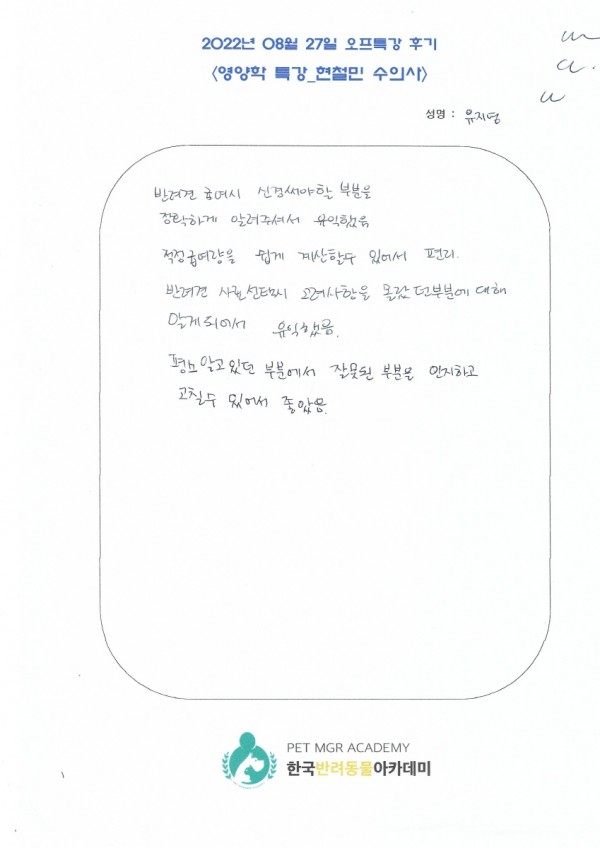 2022년 08월 27일 오프특강 후기
<영양학 특강_현철민 수의사>
성명 : 유지영
반려견 급여시 신경써야할 부분을
정확하게 알려주셔서 유익했음
적정급여량을 쉽게 계산할수 있어서 편리.
반려견 사료선택시 고려사항을 몰랐던부분에 대해
알게되어서 유익했음.
평소알고있던 부분에서 잘못된 부분을 인지하고
고칠수 있어서 좋았음.
PET MGR ACADEMY
한국반려동물아카데미